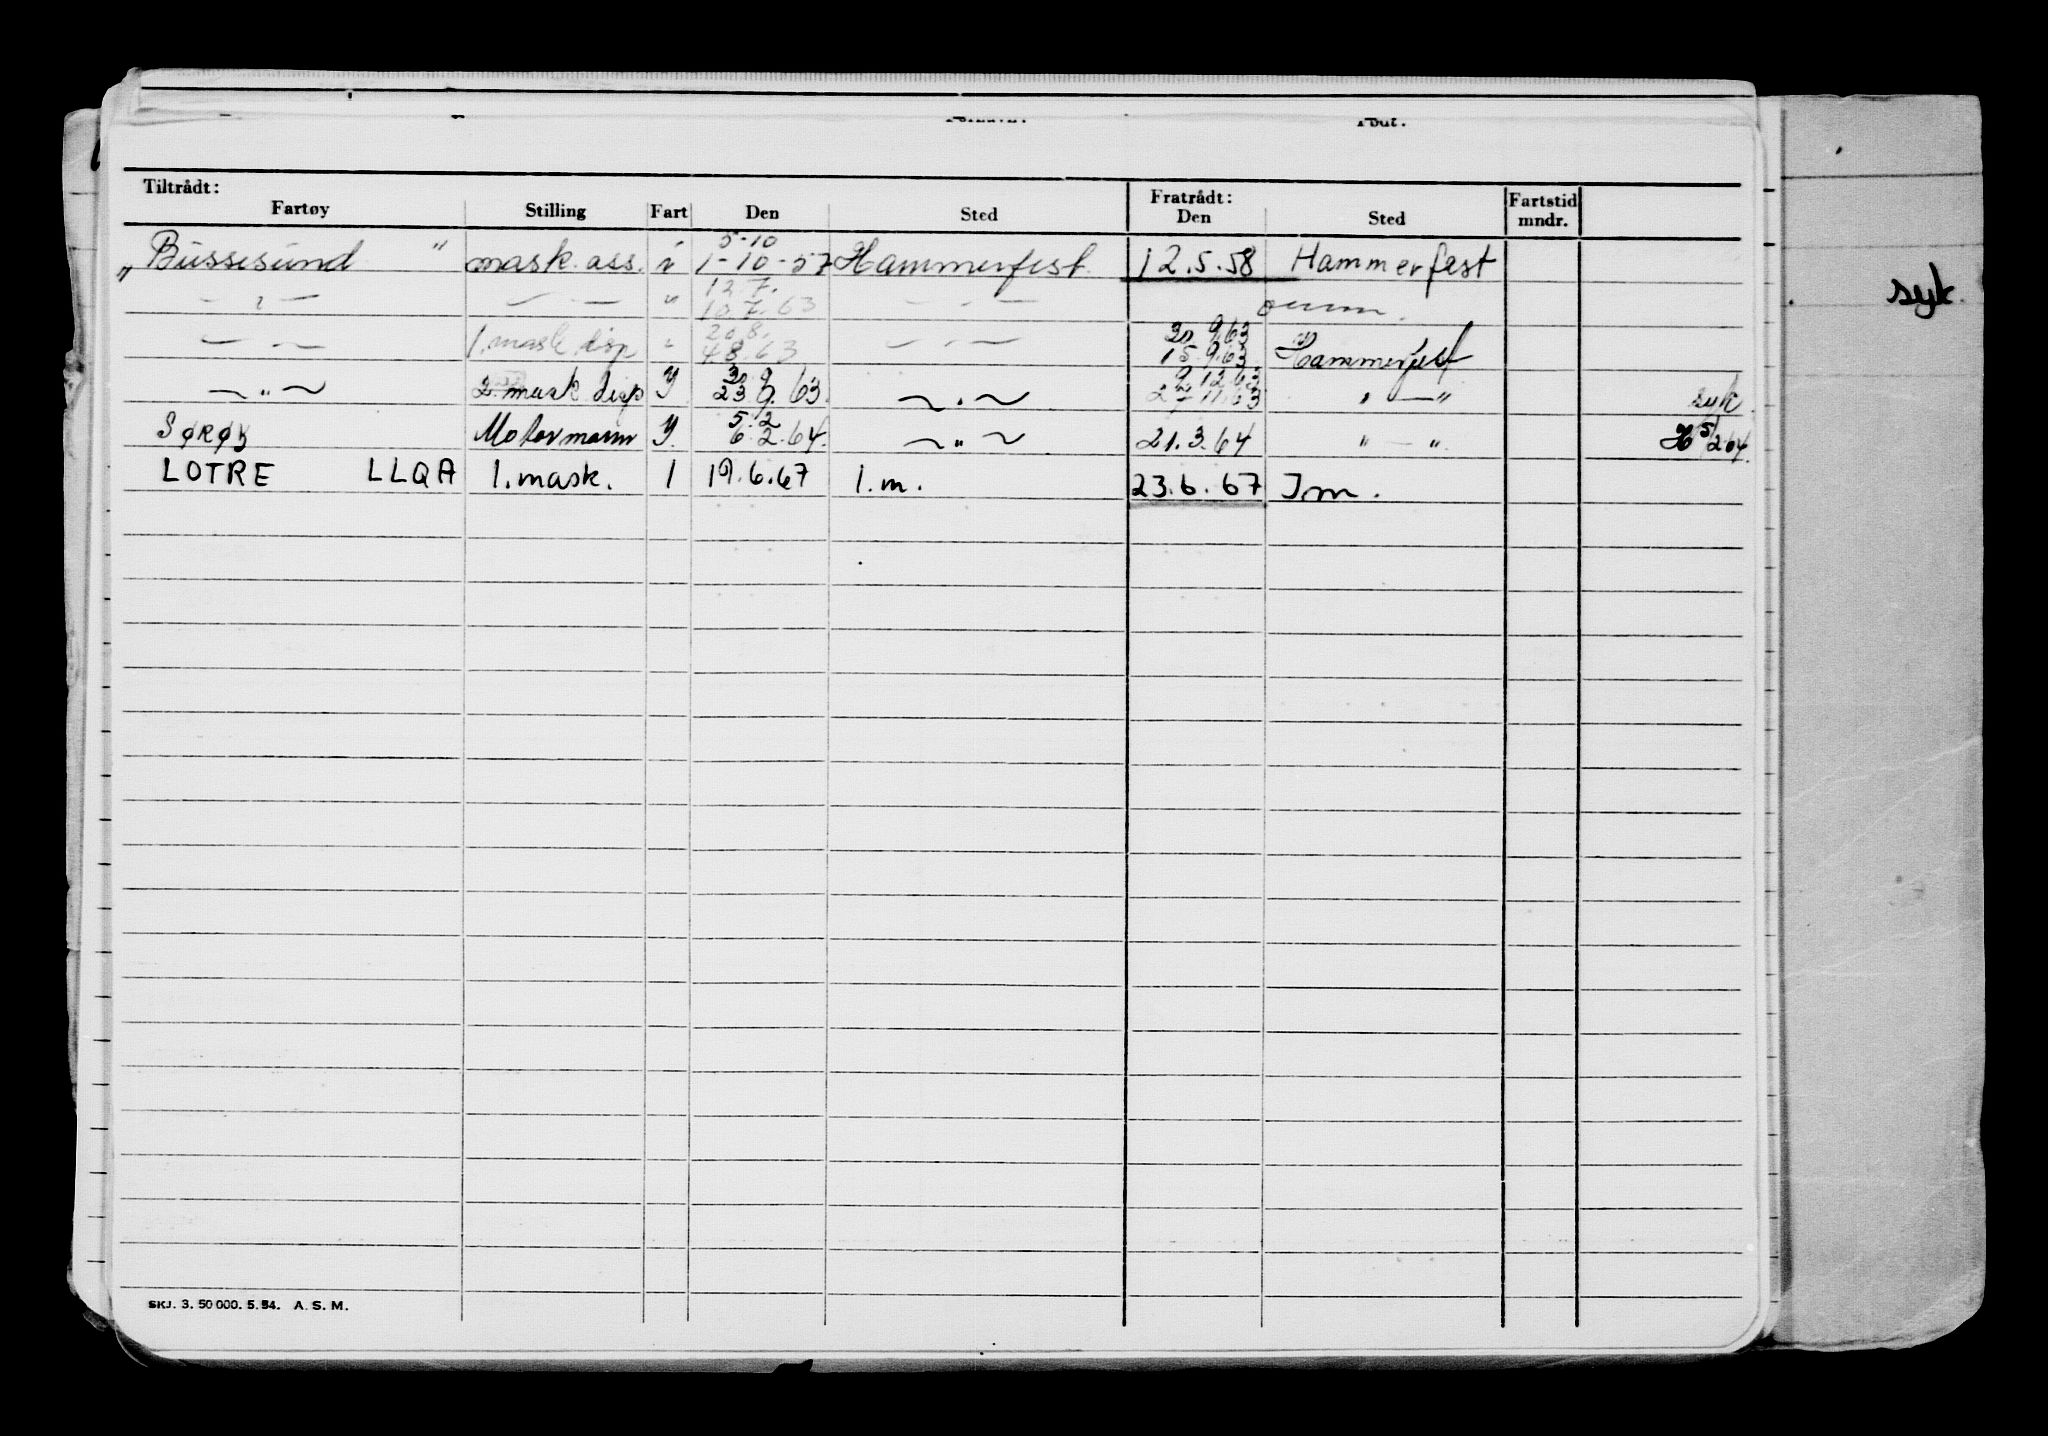 Tiltrådt: Fratrådt:
Fartøy Stilling Fart Den Sted Den Sted Fartstid mndr.
5-10
„Bussesund" mask. ass. i 1-10-57 Hammerfest 12.5.58 Hammerfest
12.7.
— " — — — " 10.7.63 — " — omm.
20.8. 30.9.63
— " — 1. mask disp " 4.8.63 — " — 15.9.63 Hammerfest
30.9. 9.12.63
— " — 2. mask disp Y 23.9.63 — " — 27.11.63 " — " syk.
5.2
SØRØY Motormann Y. 6.2.64. — " — 21.3.64 " — " H 5/2 64.
LOTRE LLQA 1. mask. 1 19.6.67 1.m. 23.6.67 Im.
syk.
SKJ. 3. 50 000. 5. 54. A. S. M.